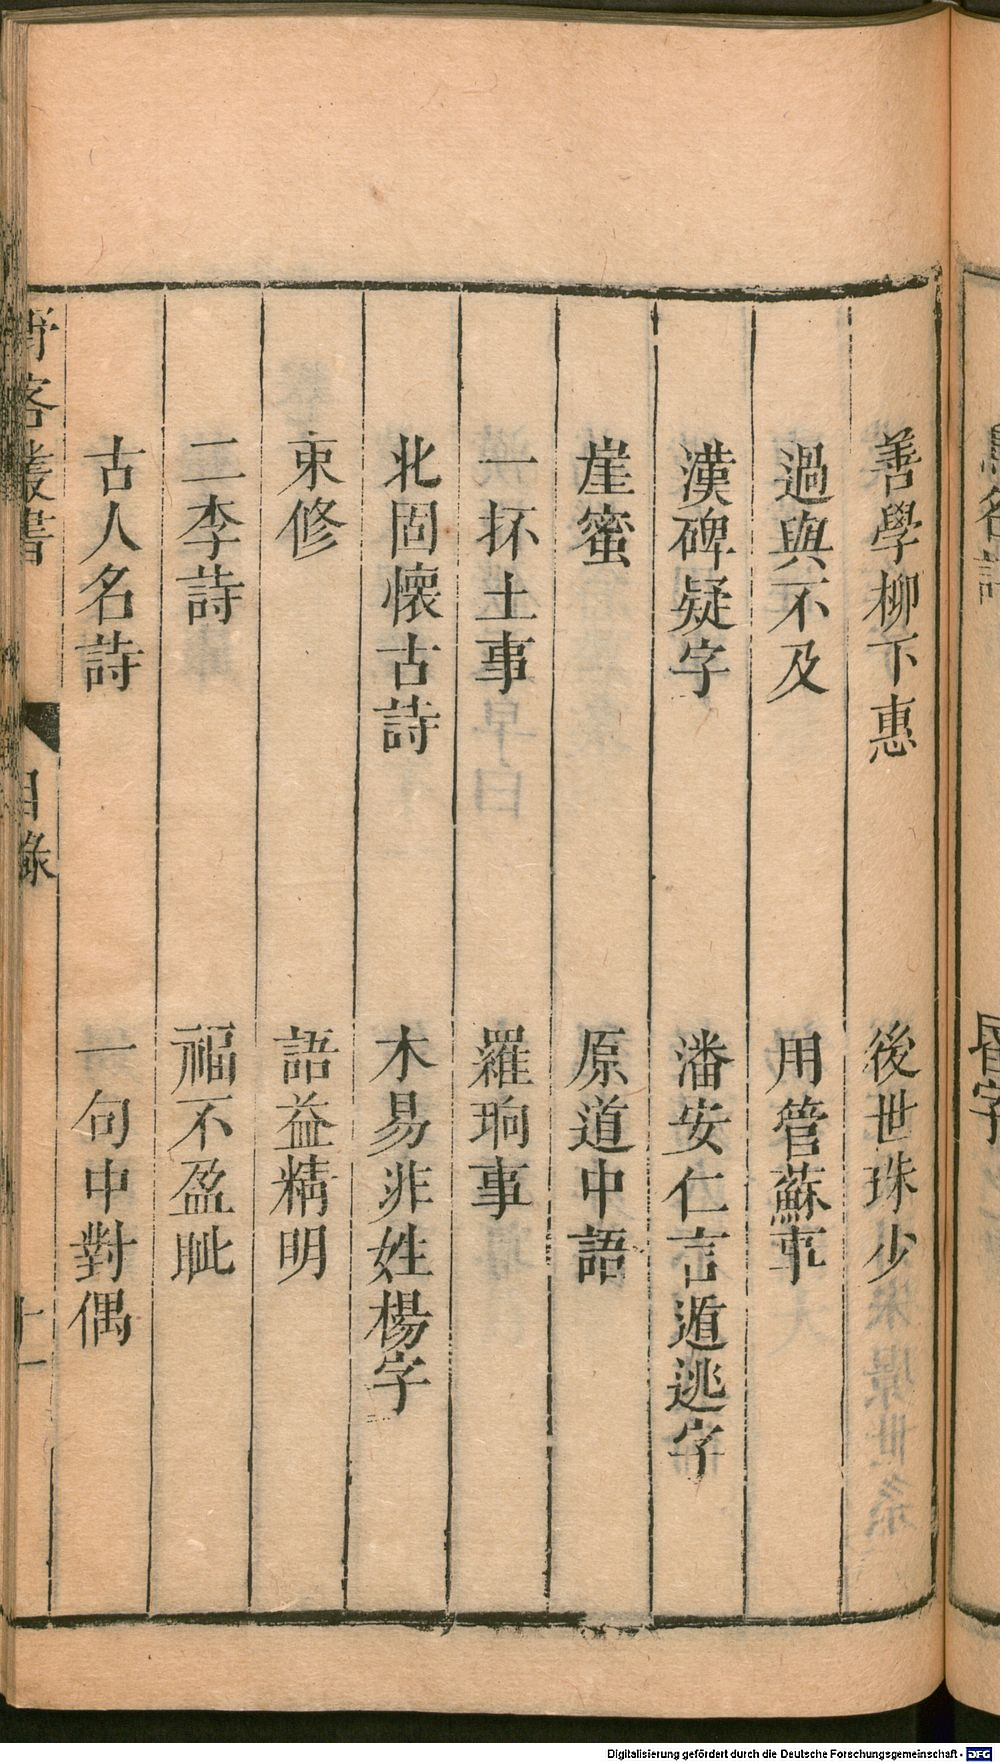 善學柳下惠　後世珠少
過與不及　用管蘇事
漢碑疑字　潘安仁言遁逃字
崖蜜　原道中語
一抔土事　羅珦事
北固懷古詩　木易非姓楊字
束修　語益精明
二李詩　福不盈眦
古人名詩　一句中對偶
客叢書　目錄　十一
Digitalisierung gefördert durch die Deutsche Forschungsgemeinschaft - DFG